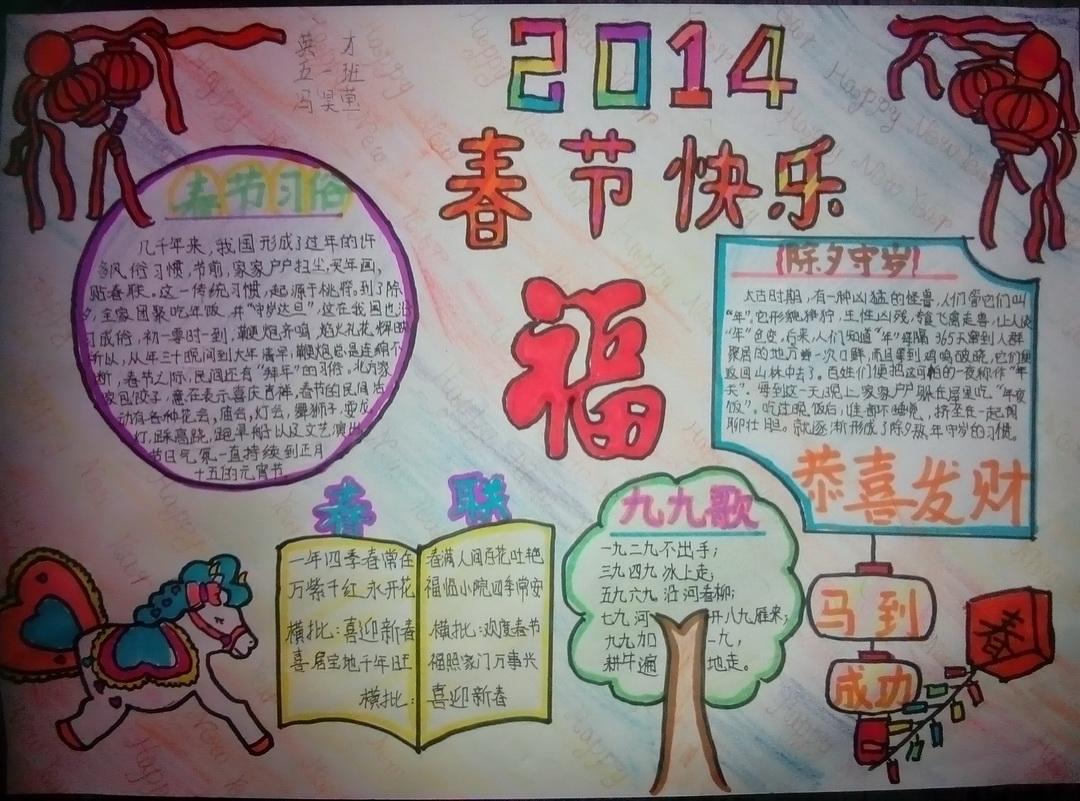 英才
五一班
2014
春节快乐
福
春节习俗
几千年来，我国形成了过年的许
多风俗习惯，节前，家家户户扫尘，买年画，
贴春联。这一传统习惯，起源于桃符。到了除
夕，全家团聚吃年饭，并“守岁达旦”，这在我国也沿
习成俗，初一零时一到，鞭炮齐鸣，焰火礼花，辉映
所以，从年三十晚间到大年清早，鞭炮总是连绵不
断，春节之际，民间还有“拜年”的习俗。北方家
家包饺子，意在表示喜庆吉祥，春节的民间活
动有各种花会，庙会，灯会，舞狮子，耍龙
灯，踩高跷，跑旱船以及文艺演出
节日气氛一直持续到正月
十五的元宵节
除夕守岁
太古时期，有一种凶猛的怪兽，人们管它们叫
“年”。它形貌狰狞，生性凶残，专食飞禽走兽，让人谈
“年”色变。后来，人们知道“年”每隔365天窜到人群
聚居的地方尝一次口鲜，而且等到鸡鸣破晓，它们便
返回山林中去了。百姓们便把这可怕的一夜称作“年
关”。每到这一天晚上，家家户户躲在屋里吃“年夜
饭”。吃过晚饭后，谁都不睡觉，挤坐在一起闲
聊壮胆。就逐渐形成了除夕熬年守岁的习惯。
恭喜发财
春联
一年四季春常在 春满人间百花吐艳
万紫千红永开花 福临小院四季常安
横批：喜迎新春 横批：欢度春节
喜居宝地千年旺 福照家门万事兴
横批：喜迎新春
九九歌
一九二九不出手；
三九四九冰上走；
五九六九沿河看柳；
七九河开八九雁来；
九九加一九，
耕牛遍地走。
马到
成功
春
Happy New Year